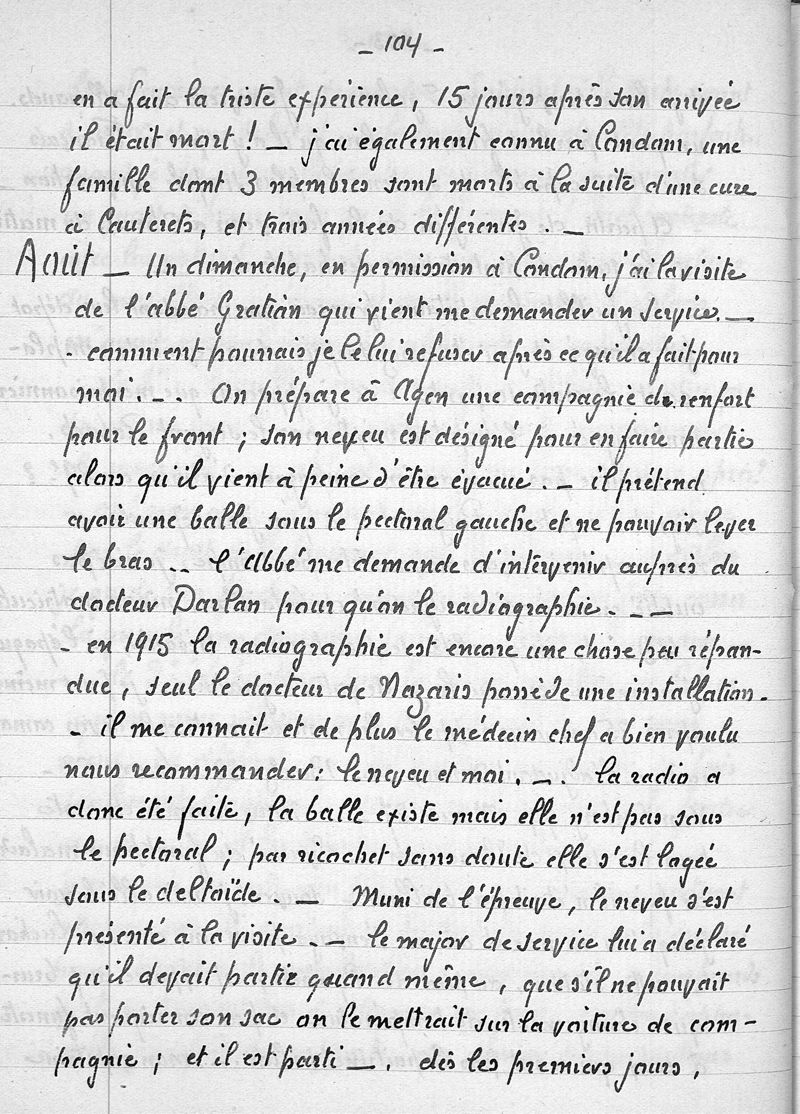 - 104 -
en a fait la triste expérience, 15 jours après son arrivée
il était mort ! — j'ai également connu à Condom, une
famille dont 3 membres sont morts à la suite d'une cure
à Cauterets, et trois années différentes. —
Août — Un dimanche, en permission à Condom, j'ai la visite
de l'abbé Gratian qui vient me demander un service. —
- comment pourrais je le lui refuser après ce qu'il a fait pour
moi. - . On prépare à Agen une compagnie de renfort
pour le front ; son neveu est désigné pour en faire partie
alors qu'il vient à peine d'être évacué. — il prétend
avoir une balle sous le pectoral gauche et ne pouvoir lever
le bras .. l'Abbé me demande d'intervenir auprès du
docteur Darlan pour qu'on le radiographie. - —
- en 1915 la radiographie est encore une chose peu répan-
due, seul le docteur de Nazaris possède une installation.
- il me connait et de plus le médecin chef a bien voulu
nous recommander : le neveu et moi. - . la radio a
donc été faite, la balle existe mais elle n'est pas sous
le pectoral ; par ricochet sans doute elle s'est logée
sous le deltoïde. — Muni de l'épreuve, le neveu s'est
présenté à la visite. — le major de service lui a déclaré
qu'il devait partir quand même, que s'il ne pouvait
pas porter son sac on le mettrait sur la voiture de com-
pagnie ; et il est parti —. dès les premiers jours,